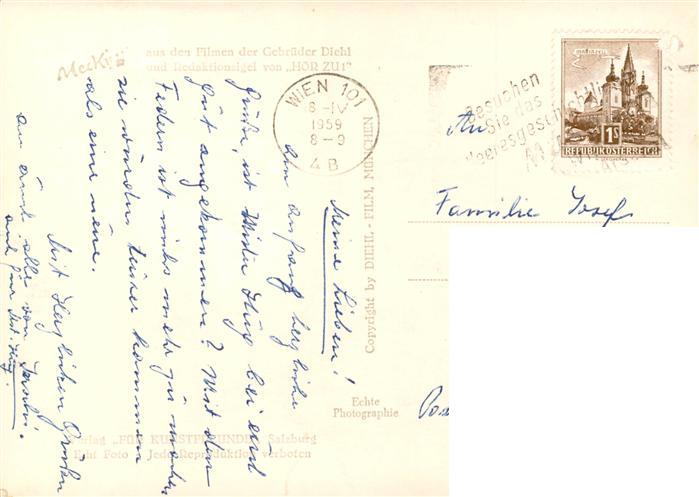 Mecki
aus den Filmen der Gebrüder Diehl
und Redaktionsigel von „HÖR ZU!"
WIEN 101
8-IV
1959
8-9
4 B
Besuchen
Sie das
Heeresgeschichtl
MARIAZELL
1S
REPUBLIK ÖSTERREICH
An
Familie Josef
Meine Lieben!
Am Anfang herzliche
Grüße, ist Mister Hug bei euch
gut angekommen? Mit den
Federn ist nichts mehr zu machen
sie würden teurer kommen
als eine neue.
Mit Herzlichen Grüßen
an euch alle von
auch für Mr. Hug.
Copyright by DIEHL - FILM, MÜNCHEN
Echte
Photographie
Verlag „FÜR KUNSTFREUNDE" Salzburg
Echt Foto - Jede Reproduktion verboten